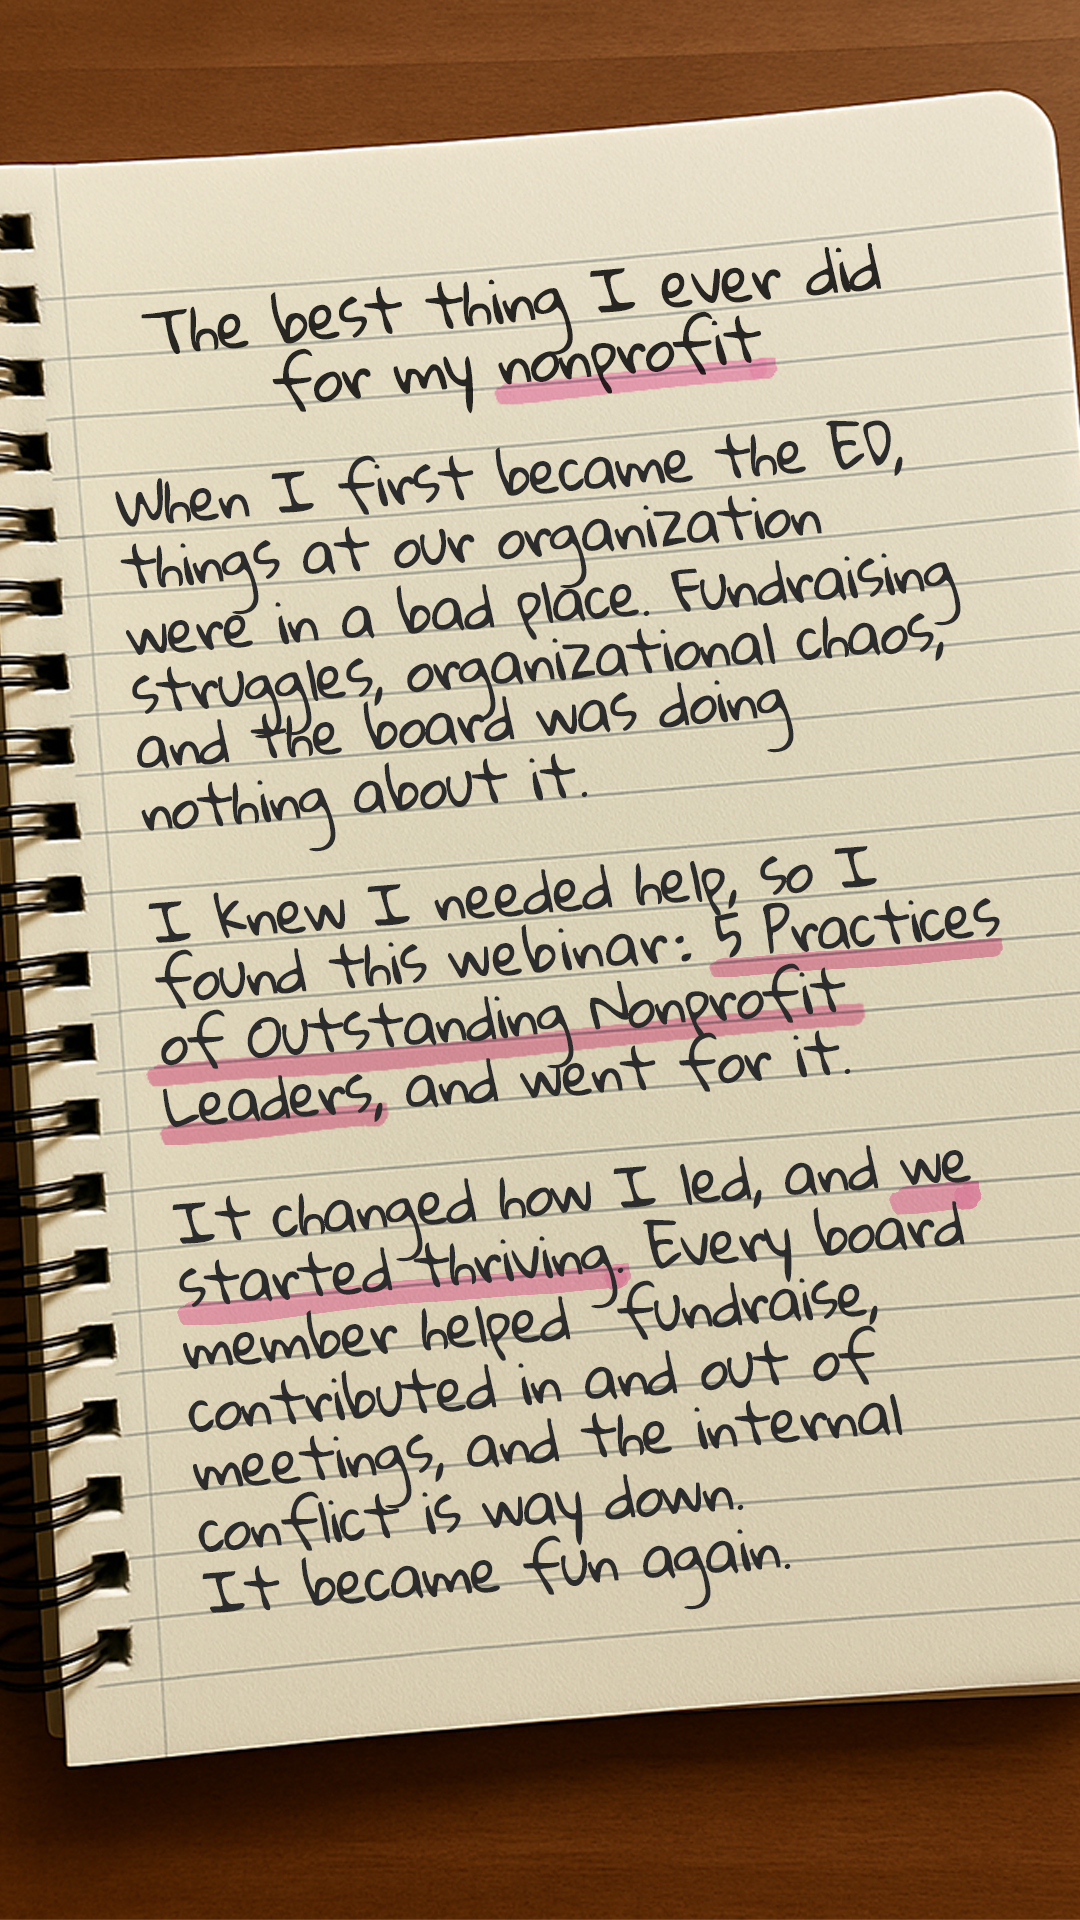 The best thing I ever did
for my nonprofit
When I first became the ED,
things at our organization
were in a bad place. Fundraising
struggles, organizational chaos,
and the board was doing
nothing about it.
I knew I needed help, so I
found this webinar: 5 Practices
of Outstanding Nonprofit
Leaders, and went for it.
It changed how I led, and we
started thriving. Every board
member helped fundraise,
contributed in and out of
meetings, and the internal
conflict is way down.
It became fun again.